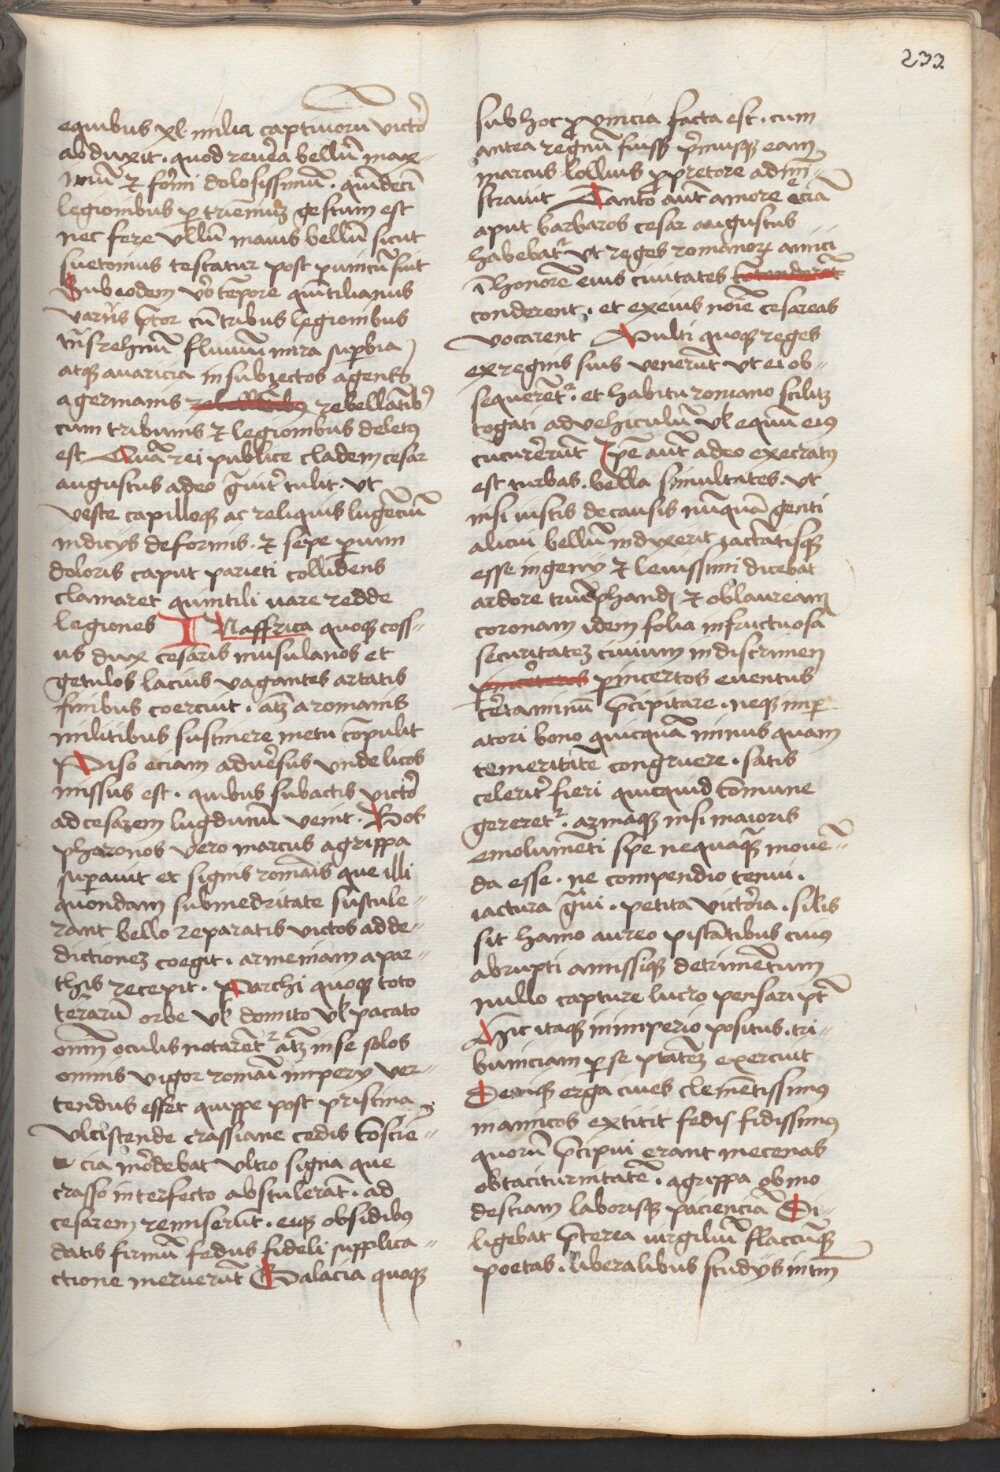 232
equibus xl milia captivorū victor̄
abduxit . quod reuera bellū max-
imū et formi dolosissimū . quīdeci
legionibus per trienniuʒ gestum est
nec fere vllū maius bellū sicut
suetonius testatur post punicū fuit
Sub eodem vō tempore quintilianus
varus p̄tor cū tribus legionibus
tūs rehnū fluuium mira superbia
atqʒ auaricia in subiectos agens
a germanis rebellātibus rebellātibꝰ
cum tribunis et legionibus deletꝰ
est Quā rei publice cladem cesar
augustus adeo g̃uit̾ tulit . vt
veste capilloqʒ ac reliquis lugenciū
indicijs deformis . et sepe p̄ nim
doloris caput parieti collidens
clamaret quintili uare redde
legiones IN affrica quoqʒ coss-
us dux cesaris musulanos et
getulos lacius vagantes artatis
finibus coercuit . atqʒ a romanis
militibus sustinere metu cōpulit
Piso eciam aduersus vndelicos
missus est . quibus subactis victor̄
ad cesarem lugdunū venit . Bos
phoronos vero marcus agrippa
superauit et signis romāis que illi
quondam sub medritate sustule-
rant bello reparatis victos ad de-
dictioneʒ coegit . armeniam a par-
this recepit . Parchi quoqʒ toto
terrarū orbe vel domito vel pacato
omni oculis notaret᷑ atqʒ in se solos
omnis vigor romāi imperij ver-
tendus esset quippe post pristina
vlciscende crassiane cedis cōscie-
cia mordebat vltro signa que
crasso interfecto abstulerāt . ad
cesarem remiserūt . eiqʒ obsidibꝰ
datis firmū fedus fideli supplica-
ctione meruerūt Galacia quoqʒ
sub hoc ꝓvincia facta est . cum
antea regnū fuisset p̄musqʒ eam
marcus lollius ꝓpretore admi-
strauit Tanto aūt amore eciā
aput barbaros cesar augustus
habebat᷑ vt reges romanorꝝ amici
ī honorē eius ciuitates
conderent . et ex eius noīe cesareas
vocarent Multi quoqʒ reges
ex regnis suis venerūt vt ei ob-
sequerēt᷑ . et habitu romano scilicet
togati ad vehiculū vel equū eiꝰ
cucurrerūt Ipse aūt adeo execratꝰ
est turbas . bella simultates . vt
nisi iustis de causis nūquā genti
alicui bellū indixerit iactātisqʒ
esse ingenij et leuissimi dicebat
ardore triūphandi et ob lauream
coronam idem folia infructuosa
securitateʒ ciuium in discrimen
per incertos euentus
certaminū p̄cipitare . neqʒ imper-
atori bono quicquā minus quam
temeritatē congruere . satis
celerit̾ fieri quicquid cōmune
gereret᷑ . armaqʒ nisi maioris
emolumēti spe nequaquā moue-
da esse . ne compendio tenui .
iactura g̃ui . petita victoria . silis
sit hamo aureo piscātibus cuiꝰ
abrupti amissiqʒ detrimētum
nullo capture lucro pensari pōt
Hic itaqʒ in imperio positus . tri-
buniciam per se ptāteʒ exercuit
Deniqʒ erga ciues clemētissimꝰ
in amicos extitit fedis fidissimus
quorū p̄cipui erant mecenas
ob taciturnitatē . agrippa ob mo
destiam laborisqʒ paciencia Di-
ligebat p̄terea virgiliū flaccūqʒ
poetas . liberalibus studijs intm̄